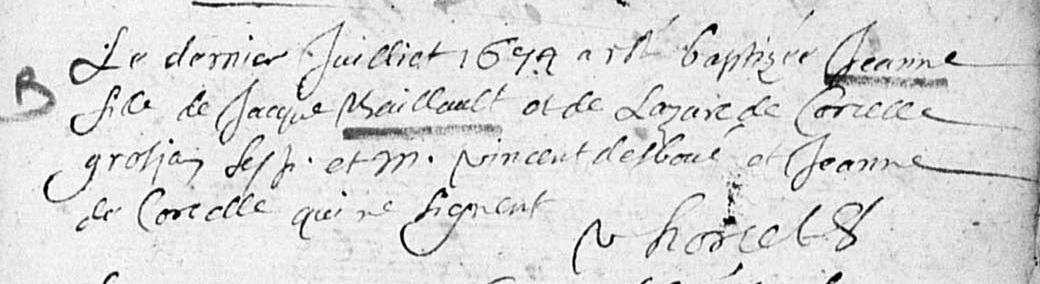 Le dernier Juilliet 1674 a esté baptizée Jeanne
B fille de Jacque Maillault et de Lazare de Corcelle
ses p. et m. vincent desboué et Jeanne
de Corcelle qui ne signent